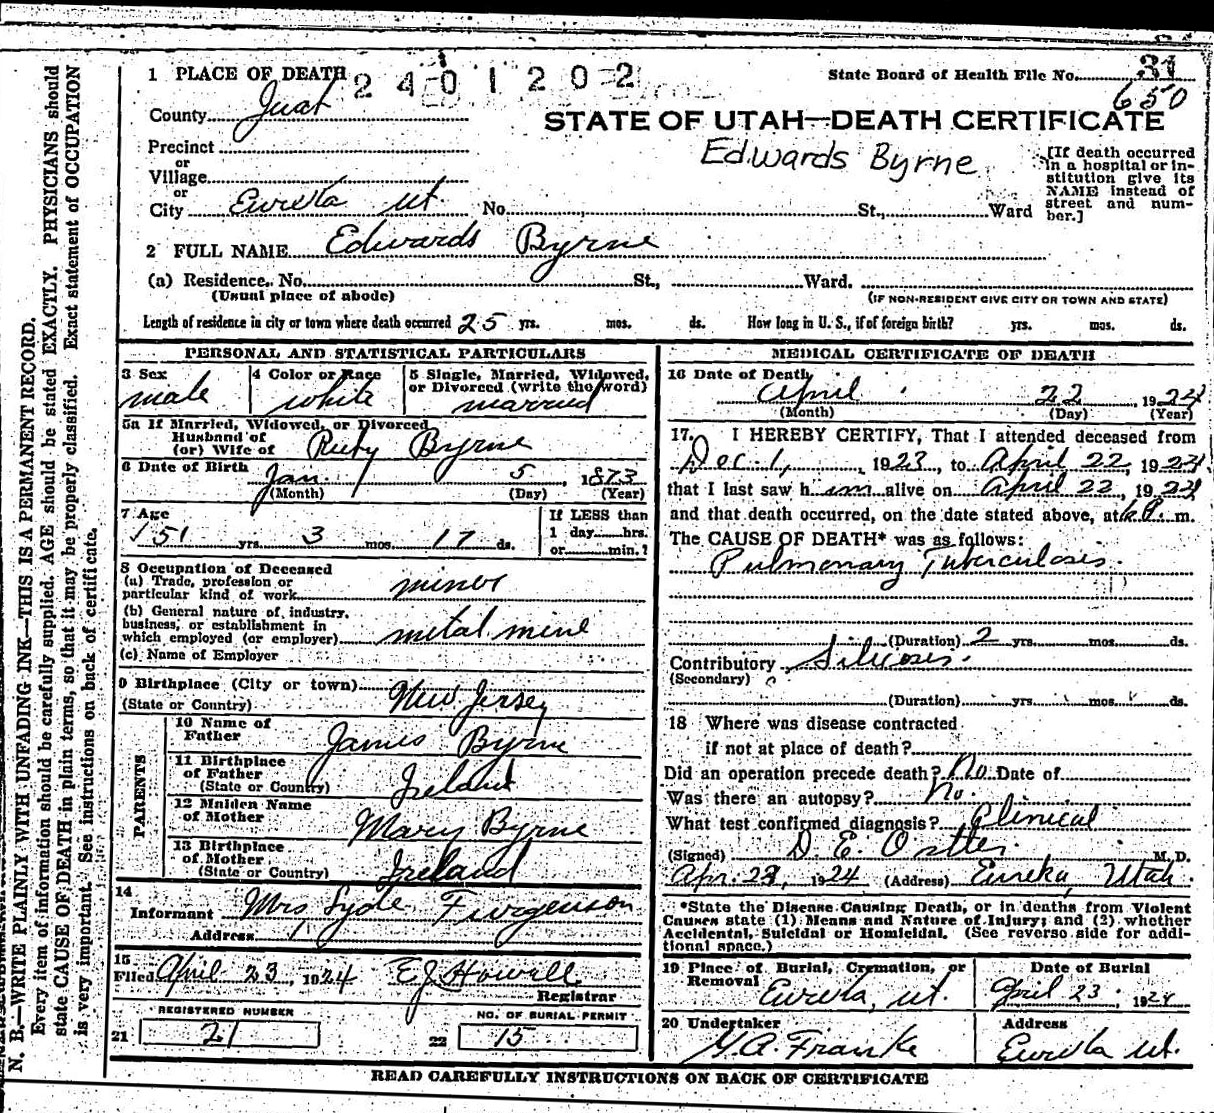 1 PLACE OF DEATH 2401202 State Board of Health File No. 31
650
County Juab
STATE OF UTAH—DEATH CERTIFICATE
Edwards Byrne
Precinct
or
Village
or
City Eureka Ut No. St., Ward
[If death occurred
in a hospital or in-
stitution give its
NAME instead of
street and num-
ber.]
2 FULL NAME Edwards Byrne
(a) Residence. No. St., Ward.
(Usual place of abode) (IF NON-RESIDENT GIVE CITY OR TOWN AND STATE)
Length of residence in city or town where death occurred 25 yrs. mos. ds. How long in U. S., if of foreign birth? yrs. mos. ds.
PERSONAL AND STATISTICAL PARTICULARS
3 Sex
male
4 Color or Race
white
5 Single, Married, Widowed,
or Divorced (write the word)
married
5a If Married, Widowed, or Divorced
Husband of
(or) Wife of Ruby Byrne
6 Date of Birth
Jan. 5, 1873
(Month) (Day) (Year)
7 Age
51 yrs. 3 mos. 17 ds.
If LESS than
1 day hrs.
or min.?
8 Occupation of Deceased
(a) Trade, profession or
particular kind of work miner
(b) General nature of industry,
business, or establishment in
which employed (or employer) metal mine
(c) Name of Employer
9 Birthplace (City or town)
(State or Country) New Jersey
PARENTS
10 Name of
Father James Byrne
11 Birthplace
of Father
(State or Country) Ireland
12 Maiden Name
of Mother Mary Byrne
13 Birthplace
of Mother
(State or Country) Ireland
14
Informant Mrs Furgenson
Address
15
Filed April 23, 1924 E.J. Howell
Registrar
REGISTERED NUMBER
21 21
NO. OF BURIAL PERMIT
22 15
MEDICAL CERTIFICATE OF DEATH
16 Date of Death
April 22, 1924
(Month) (Day) (Year)
17. I HEREBY CERTIFY, That I attended deceased from
Dec. 1, 1923, to April 22, 1924
that I last saw h im alive on April 22, 1924
and that death occurred, on the date stated above, at 6 P. m.
The CAUSE OF DEATH* was as follows:
Pulmonary Tuberculosis.
(Duration) 2 yrs. mos. ds.
Contributory Silicosis.
(Secondary)
(Duration) yrs. mos. ds.
18 Where was disease contracted
if not at place of death?
Did an operation precede death? No. Date of
Was there an autopsy? No.
What test confirmed diagnosis? Clinical
(Signed) D. E. Ostler M. D.
Apr. 23, 1924 (Address) Eureka, Utah.
*State the Disease Causing Death, or in deaths from Violent
Causes state (1) Means and Nature of Injury; and (2) whether
Accidental, Suicidal or Homicidal. (See reverse side for addi-
tional space.)
19 Place of Burial, Cremation, or
Removal
Eureka, Ut.
Date of Burial
April 23, 1924
20 Undertaker
G. A. Franke
Address
Eureka Ut.
READ CAREFULLY INSTRUCTIONS ON BACK OF CERTIFICATE
N. B.—WRITE PLAINLY WITH UNFADING INK—THIS IS A PERMANENT RECORD.
Every item of information should be carefully supplied. AGE should be stated EXACTLY. PHYSICIANS should
state CAUSE OF DEATH in plain terms, so that it may be properly classified. Exact statement of OCCUPATION
is very important. See instructions on back of certificate.